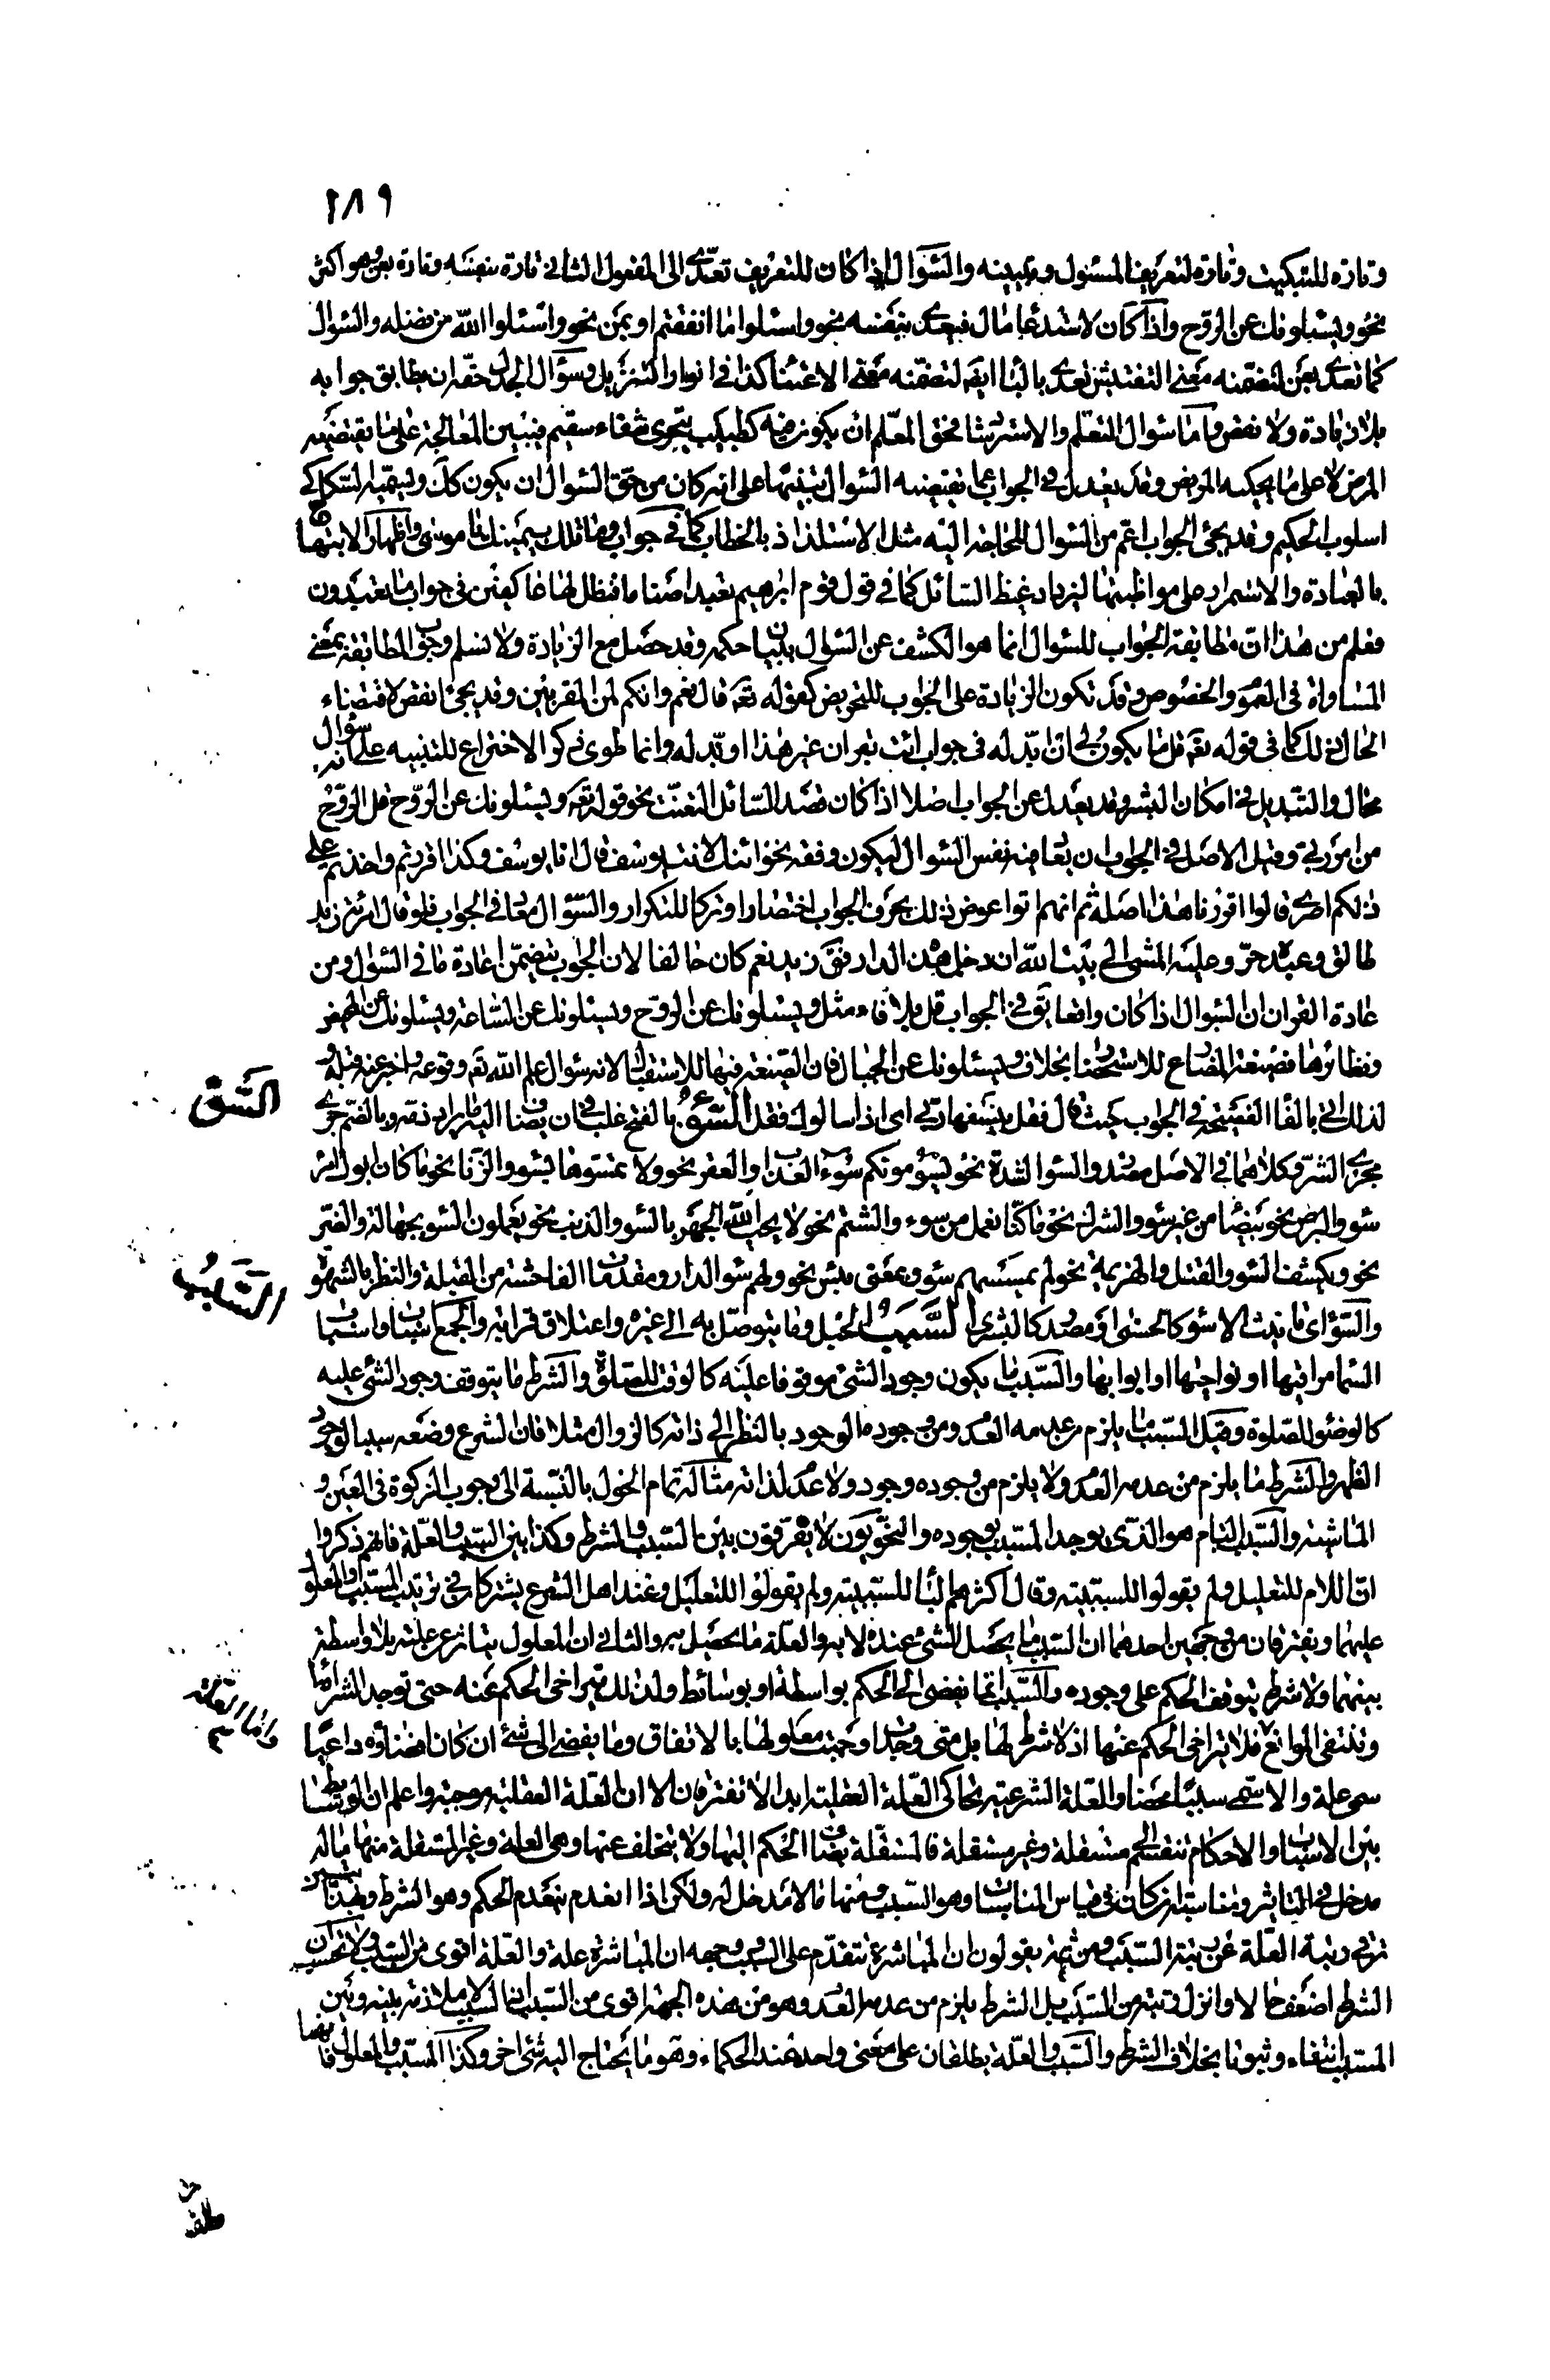 ٢٨٩
وتارة للتبكيت وتارة لتعريف المسئول وتبيينه والسؤال اذا كان للتعريف تعدى الى المفعول الثانى تارة بنفسه وتارة بعن وهو اكثر
نحو ويسئلونك عن الروح واذا كان لاستدعاء مال فيعدى بنفسه نحو واسئلوا ما انفقتم او بمن نحو واسئلوا الله من فضله والسؤال
كما تعدى بعن لتضمنه معنى التفتيش تعدى بالباء ايضا لتضمنه معنى الاعتناء كذا فى انوار التنزيل وسؤال الجدل حقه ان يطابق جوابه
بلا زيادة ولا نقص واما سؤال التعلم والاسترشاد فحق المعلم ان يكون فيه كطبيب يتحرى شفاء سقيم فيبين المعالجة على ما يقتضيه
المرض لا على ما يحكيه المريض وقد يعدل فى الجواب عما يقتضيه السؤال تنبيها على انه كان من حق السؤال ان يكون كذلك ويسميه السكاكى
اسلوب الحكيم وقد يجئ الجواب اعم من السؤال للحاجة اليه مثل الاستلذاذ بالخطاب كما فى جواب وما تلك بيمينك يا موسى واظهار الابتهاج
بالعبادة والاستمرار على مواظبتها ليزداد غيظ السائل كما فى قول قوم ابرهيم نعبد اصناما فنظل لها عاكفين فى جواب ما تعبدون
فعلم من هذا ان مطابقة الجواب للسؤال انما هو الكشف عن السؤال بيان حكمه وقد حصل مع الزيادة ولا نسلم وجوب المطابقة بمعنى
المساواة فى العموم والخصوص وقد تكون الزيادة على الجواب للتحريض كقوله تعه قال نعم وانكم لمن المقربين وقد يجئ انقص لاقتضاء
الحال ذلك كما فى قوله تعه قل ما يكون لى ان ابدله فى جواب ائت بقران غير هذا او بدله وانما طوى ذكر الاختراع للتنبيه على انه سؤال
محال والتبديل فى امكان البشر وقد يعدل عن الجواب اصلا اذا كان قصد السائل التعنت نحو قوله تعه ويسئلونك عن الروح قل الروح
من امر ربى وقيل الاصل فى الجواب ان يعاد فيه نفس السؤال ليكون وفقه نحو ائنك لانت يوسف قال انا يوسف وكذا اقررتم واخذتم على
ذلكم اصرى قالوا اقررنا هذا اصله ثم انهم اتوا عوض ذلك بحرف الجواب اختصارا وتركا للتكرار والسؤال معاد فى الجواب فلو قال امرئة زيد
طالق وعبده حر وعليه المشى الى بيت الله ان دخل هذه الدار فقال زيد نعم كان حالفا لان الجواب يتضمن اعادة ما فى السؤال ومن
عادة القران ان السؤال اذا كان واقعا يقال فى الجواب قل بلا فاء مثل ويسئلونك عن الروح ويسئلونك عن الساعة ويسئلونك عن الخمر
ونظائرها فصيغة المضارع للاستحضار بخلاف ويسئلونك عن الجبال فان الصيغة فيها للاستقبال لانه سؤال علم الله تعه وقوعه واخبر عنه قبله و
لذلك اتى بالفاء الفصيحة فى الجواب حيث قال فقل ينسفها ربى اى اذا سالوك فقل السوء بالفتح غلب فى ان يضاف اليه ما يراد ذمه وبالضم جرى
مجرى الشر وكلاهما فى الاصل مصدر والسوء الشدة نحو يسومونكم سوء العذاب والعقر نحو ولا تمسوها بسوء والزنا نحو ما كان ابوك امرء
سوء والبرص نحو بيضاء من غير سوء والشرك نحو ما كنا نعمل من سوء والشتم نحو لا يحب الله الجهر بالسوء والذنب نحو يعملون السوء بجهالة والضر
نحو ويكشف السوء والقتل والهزيمة نحو لم يمسسهم سوء وبمعنى بئس نحو ولهم سوء الدار ومقدمات الفاحشة من القبلة والنظر بالشهوة
والسوأى تانيث الاسوء كالحسنى او مصدر كالبشرى السبب الحبل وما يتوصل به الى غيره واعتلاق قرابة والجمع اسباب واسباب
السماء مراقيها او نواحيها او ابوابها والسبب ما يكون وجود الشئ موقوفا عليه كالوقت للصلوة والشرط ما يتوقف وجود الشئ عليه
كالوضوء للصلوة وقيل السبب ما يلزم من عدمه العدم ومن وجوده الوجود بالنظر الى ذاته كالزوال مثلا فان الشرع وضعه سببا لوجوب
الظهر والشرط ما يلزم من عدمه العدم ولا يلزم من وجوده وجود ولا عدم لذاته مثاله تمام الحول بالنسبة الى وجوب الزكوة فى العين و
الماشية والسبب التام هو الذى يوجد المسبب بوجوده والنحويون لا يفرقون بين السبب والشرط وكذا بين السبب والعلة فانهم ذكروا
ان اللام للتعليل ولم يقولوا للسببية وقال اكثرهم الباء للسببية ولم يقولوا للتعليل وعند اهل الشرع يشتركان فى ترتب المسبب والمعلول
عليهما ويفترقان من وجهين احدهما ان السبب ما يحصل الشئ عنده لا به والعلة ما يحصل به والثانى ان المعلول يتازع عن علته بلا واسطة
بينهما ولا شرط يتوقف الحكم على وجوده والسبب انما يفضى الى الحكم بواسطة او بوسائط ولذلك يتراخى الحكم عنه حتى توجد الشرائط
وتنتفى الموانع فلا يتراخى الحكم عنها اذ لا شرط لها بل متى وجدت اوجبت معلولها بالاتفاق وما يفضى الى شئ ان كان افضاؤه داعيا
سمى علة والا سمى سببا محضا والعلة الشرعية تحاكى العلة العقلية ابدا لا تفترقان الا ان العلة العقلية موجبة واعلم ان الوسائط
بين الاسباب والاحكام تنقسم الى مستقلة وغير مستقلة فالمستقلة يضاف الحكم اليها ولا يتخلف عنها وهى العلة وغير المستقلة منها ما له
مدخل فى التاثير ومناسبة ان كان فى قياس المناسبات وهو السبب ومنها ما لا مدخل له ولكن اذا انعدم ينعدم الحكم وهو الشرط وبهذا يتبين
ترقى رتبة العلة عن رتبة السبب ومن ثمة يقولون ان المباشرة تتقدم على السبب وجهه ان المباشرة علة والعلة اقوى من السبب ولا تحسب ان
الشرط اضعف حالا وانزل رتبة من السبب بل الشرط يلزم من عدمه العدم وهو من هذه الجهة اقوى من السبب اذ السبب لا ملازمة بينه وبين
المسبب انتفاء وثبوتا بخلاف الشرط والسبب والعلة يطلقان على معنى واحد عند الحكماء وهو ما يحتاج اليه شئ اخر وكذا المسبب والمعلول فانهما
السوء
السبب
واما العلة